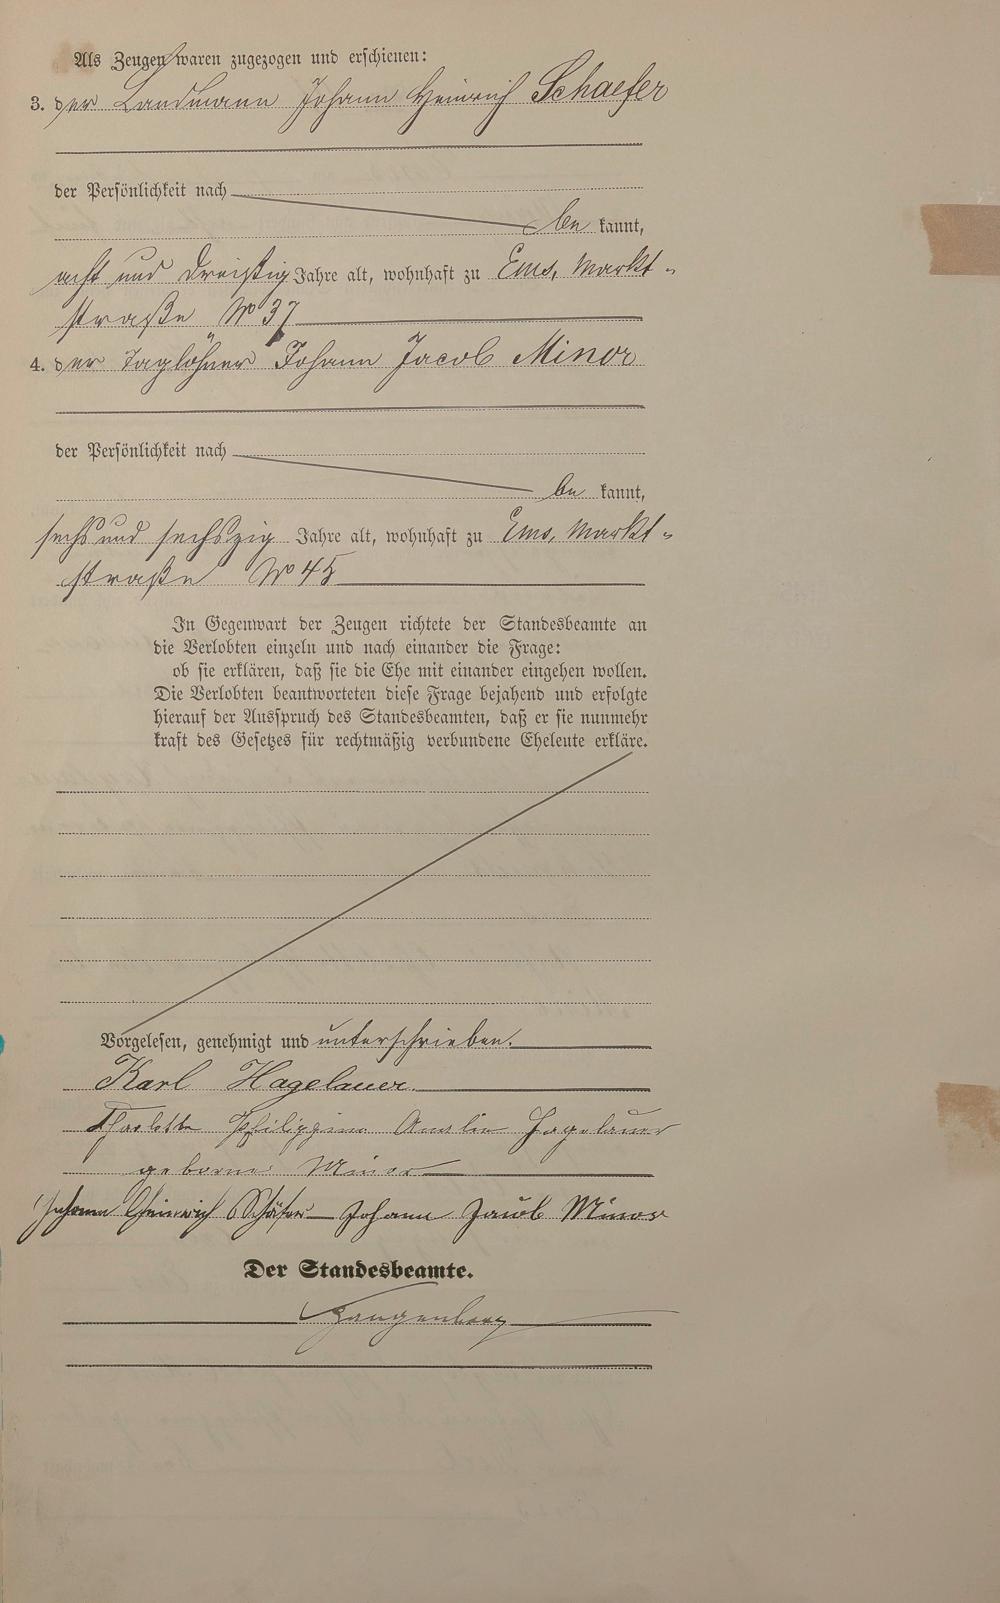 Als Zeugen waren zugezogen und erschienen:
3. der Landmann Johann Heinrich Schaefer
der Persönlichkeit nach
be kannt,
acht und dreißig Jahre alt, wohnhaft zu Ems, Markt-
straße No 37
4. der Taglöhner Johann Jacob Minor
der Persönlichkeit nach
be kannt,
sechs und sechszig Jahre alt, wohnhaft zu Ems, Markt-
straße No 45
In Gegenwart der Zeugen richtete der Standesbeamte an
die Verlobten einzeln und nach einander die Frage:
ob sie erklären, daß sie die Ehe mit einander eingehen wollen.
Die Verlobten beantworteten diese Frage bejahend und erfolgte
hierauf der Ausspruch des Standesbeamten, daß er sie nunmehr
kraft des Gesetzes für rechtmäßig verbundene Eheleute erkläre.
Vorgelesen, genehmigt und unterschrieben.
Karl Hagelauer
Philippine Hagelauer
geborne Minor
Johann Heinrich Schäfer Johann Jacob Minor
Der Standesbeamte.